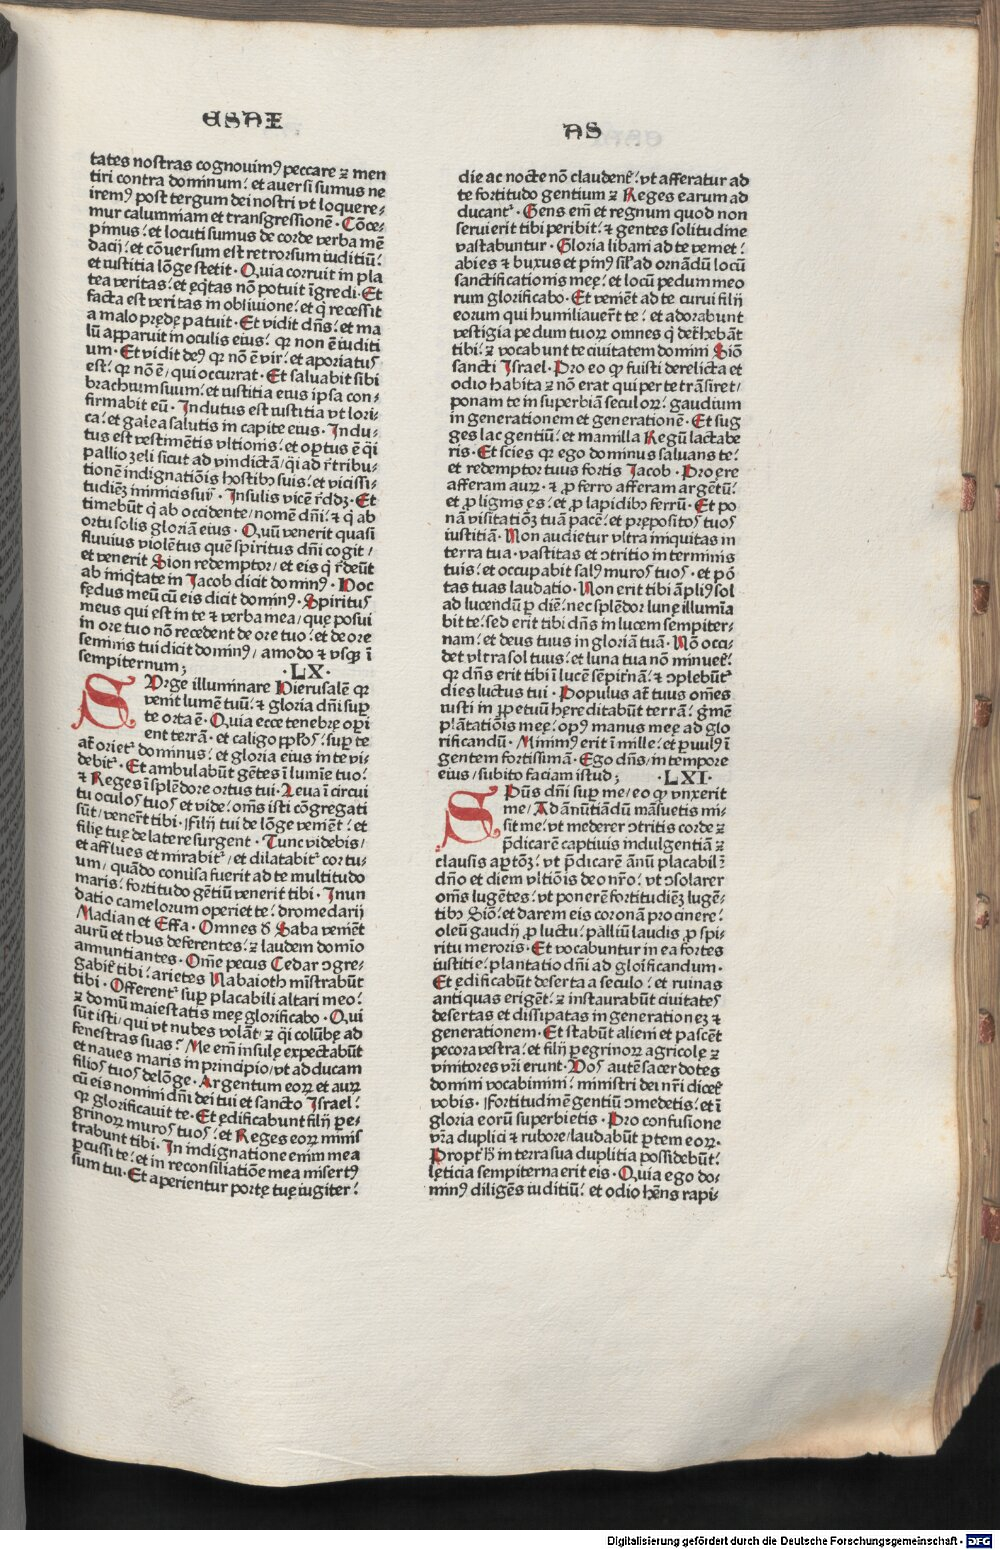 ESAI
AS
tates nostras cognouim⁹ peccare ⁊ men
tiri contra dominum: et auersi sumus ne
irem⁹ post tergum dei nostri vt loquere-
mur calumniam et transgressionē. Cōce-
pimus: et locuti sumus de corde verba mē
dacij: et cōuersum est retrorsum iuditiū:
et iustitia lōge stetit. Quia corruit in pla
tea veritas: et eq̄tas nō potuit īgredi. Et
facta est veritas in obliuione: et q̄ recessit
a malo prędę patuit. Et vidit dn̄s: et ma
lū apparuit in oculis eius: qꝛ non ē iuditi
um. Et vidit de⁹ qꝛ nō ē vir: et aporiatus
est: qꝛ nō ē / qui occurrat. Et saluabit sibi
brachium suum: et iustitia eius ipsa con-
firmabit eū. Indutus est iustitia vt lori-
ca: et galea salutis in capite eius. Indu-
tus est vestimētis vltionis: et optus ē q̄i
pallio zeli sicut ad vindictā / q̄i ad r̄tribu-
tionē indignatiōis hostib⁹ suis: et vicissi-
tudinē inimicis suis. Insulis vicē r̄ddꝫ. Et
timebūt q̄ ab occidente / nomē dn̄i: ⁊ q̄ ab
ortu solis gloriā eius. Quū venerit quasi
fluuius violētus quē spiritus dn̄i cogit /
et venerit Sion redemptor / et eis q̄ r̄deūt
ab iniq̄tate in Jacob dicit domin⁹. Hoc
fędus meū cū eis dicit domin⁹. Spiritus
meus qui est in te ⁊ verba mea / quę posui
in ore tuo nō recedent de ore tuo: et de ore
seminis tui dicit domin⁹ / amodo ⁊ vsqꝫ ī
sempiternum; .LX.
SUrge illuminare Hierusalē qꝛ
venit lumē tuū: ⁊ gloria dn̄i sup̄
te orta ē. Quia ecce tenebrę opi
ent terrā. et caligo pp̄los: sup̄ te
aūt orieī dominus: et gloria eius in te vi-
debiī. Et ambulabūt gētes ī lumie tuo:
⁊ Reges ī splēdore ortus tui. Leua ī circui
tu oculos tuos et vide: om̄s isti cōgregati
sūt / venert̄ tibi. Filij tui de lōge veniēt: et
filię tuę de latere surgent. Tunc videbis /
et afflues et mirabiī / et dilatabiī cor tu-
um / quādo conuisa fuerit ad te multitudo
maris: fortitudo gētiū venerit tibi. Inun
datio camelorum operiet te: dromedarij
Madian et Effa. Omnes d̄ Saba veniēt
aurū et thus deferentes: ⁊ laudem domīo
annuntiantes. Om̄e pecus Cedar ↄgre-
gabiī tibi: arietes Nabaioth mīstrabūt
tibi. Offerenī sup̄ placabili altari meo:
⁊ domū maiestatis meę glorificabo. Qui
sūt isti / qui vt nubes volāt / ⁊ q̄i colūbę ad
fenestras suas: Me em̄ insulę expectabūt
et naues maris in principio / vt adducam
filios tuos de lōge. Argentum eoꝝ et auꝝ
cū eis nomini dn̄i dei tui et sancto Israel:
qꝛ glorificauit te. Et ędificabunt filij pe-
grinoꝝ muros tuos: et Reges eoꝝ minis
trabunt tibi. In indignatione enim mea
ꝑcussi te: et in reconsiliatiōe mea misert⁹
sum tui. Et aperientur portę tuę iugiter:
die ac nocte nō claudenī: vt afferatur ad
te fortitudo gentium ⁊ Reges earum ad
ducanī. Gens em̄ et regnum quod non
seruierit tibi peribit: ⁊ gentes solitudine
vastabuntur. Gloria libani ad te veniet:
abies ⁊ buxus et pin⁹ sil̄ ad ornādū locū
sanctificationis meę: et locū pedum meo
rum glorificabo. Et veniēt ad te curui filij
eorum qui humiliauert̄ te: et adorabunt
vestigia pedum tuoꝝ omnes q̄ det̄hebāt
tibi: ⁊ vocabunt te ciuitatem domini Siō
sancti Israel. Pro eo qꝙ fuisti derelicta et
odio habita ⁊ nō erat qui per te trāsiret /
ponam te in superbiā seculoꝝ: gaudium
in generationem et generationē. Et sug
ges lac gentiū: et mamilla Regū lactabe
ris. Et scies qꝛ ego dominus saluans te:
et redemptor tuus fortis Jacob. Pro ęre
afferam auꝝ. ⁊ ꝓ ferro afferam argētū:
et ꝓ lignis ęs: et ꝓ lapidib⁹ ferrū. Et po
nā visitatiōꝫ tuā pacē: et prępositos tuos
iustitiā. Non audietur vltra iniquitas in
terra tua. vastitas et ↄtritio in terminis
tuis: et occupabit sal⁹ muros tuos. et pō
tas tuas laudatio. Non erit tibi āpli⁹ sol
ad lucendū ꝑ diē: nec splēdor lunę illumīa
bit te: sed erit tibi dn̄s in lucem sempiter-
nam: et deus tuus in gloriā tuā. Nō occi-
det vltra sol tuus: et luna tua nō minueī:
qꝛ dn̄s erit tibi ī lucē sēpit̄nā: ⁊ ↄplebūt̄
dies luctus tui. Populus aūt tuus om̄es
iusti in ꝑpetuū hęreditabūt terrā: ḡmē
plātatiōis meę: op⁹ manus meę ad glo
rificandū. Minim⁹ erit ī mille: et ꝑuul⁹ ī
gentem fortissimā. Ego dn̄s / in tempore
eius / subito faciam istud; .LXI.
SPūs dn̄i sup̄ me / eo qꝙ vnxerit
me / Ad ānūtiādū māsuetis mi-
sit me: vt mederer ↄtritis corde ⁊
p̄dicarē captiuis indulgentiā ⁊
clausis aꝑtōꝫ: vt p̄dicarē ānū placabilē
dn̄o et diem vltiōis deo nr̄o: vt ↄsolarer
om̄s lugētes: vt ponerē fortitudinē lugē-
tib⁹ Siō: et darem eis coronā pro cinere:
oleū gaudij ꝓ luctu: palliū laudis ꝓ spi-
ritu meroris. Et vocabuntur in ea fortes
iustitię: plantatio dn̄i ad gloīficandum.
Et ędificabūt deserta a seculo: et ruinas
antiquas erigēt: ⁊ instaurabūt ciuitates
desertas et dissipatas in generationeꝫ ⁊
generationem. Et stabūt alieni et pascēt
pecora vestra: et filij ꝑegrinoꝝ agricolę ⁊
vinitores vr̄i erunt. Vos autē sacerdotes
domini vocabimini: ministri dei nr̄i diceī
vobis. Fortitudinē gentiū ↄmedetis: et ī
gloria eorū superbietis. Pro confusione
vr̄a duplici ⁊ rubore / laudabūt ꝑtem eoꝝ.
Propt̄ h̄ in terra sua duplitia possidebūt:
lęticia sempiterna erit eis. Quia ego do-
min⁹ diligēs iuditiū: et odio hn̄s rapi-
Digitalisierung gefördert durch die Deutsche Forschungsgemeinschaft - DFG